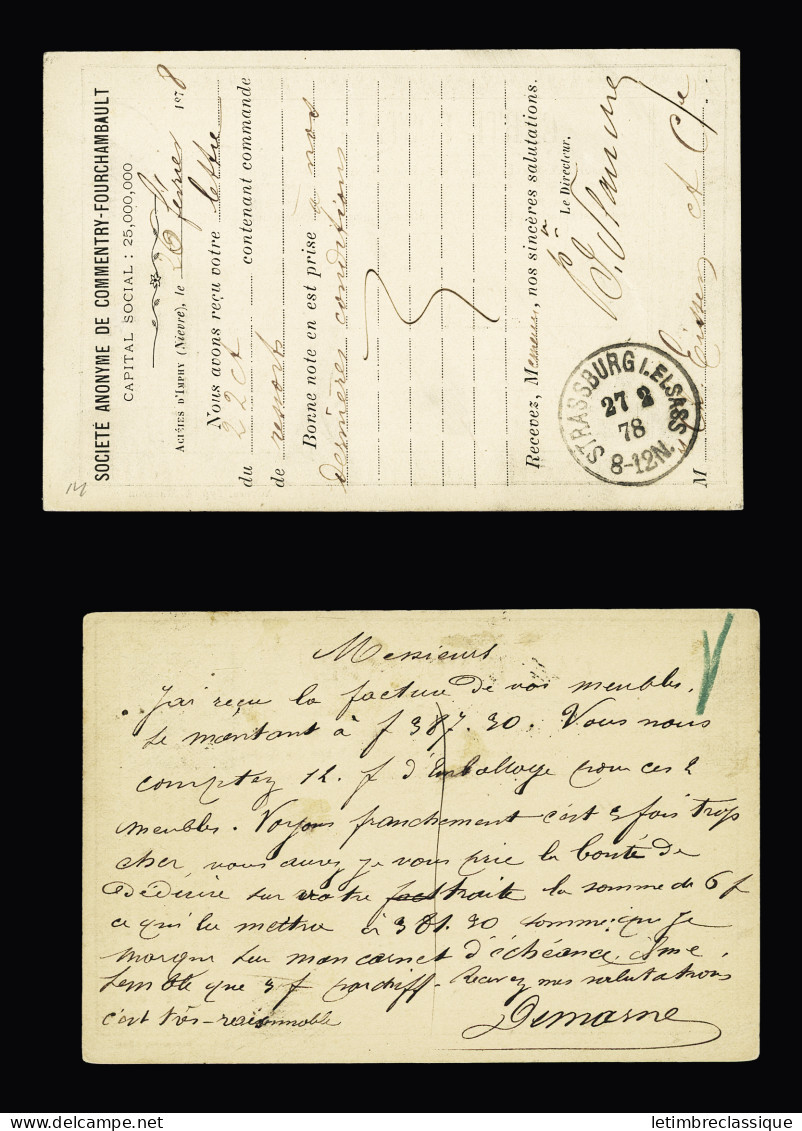 SOCIETÉ ANONYME DE COMMENTRY-FOURCHAMBAULT
CAPITAL SOCIAL : 25,000,000
ACIÉRIES D'IMPHY (Nièvre), le 26 février 1878
Nous avons reçu votre lettre
du 22 ct contenant commande
de ressorts
Bonne note en est prise à nos
dernières conditions
Recevez, Messieurs, nos sincères salutations.
Le Directeur.
M et Cie
STRASSBURG I. ELSASS
27 2
78
8-12N.
Messieurs
J'ai reçu la facture de vos meubles.
Le montant à f 387.30. Vous nous
comptez 12 f d'Emballage pour ces 2
meubles. Voyons franchement c'est 3 fois trop
cher, vous aurez je vous prie la bonté de
Déduire sur votre traite la somme de 6 f
ce qui la mettra à 381.30 somme que je
marque sur mon carnet d'échéance. Il me
semble que 3 f par chiff - Recevez mes salutations
c'est très-raisonnable
Demarne
letimbreclassique